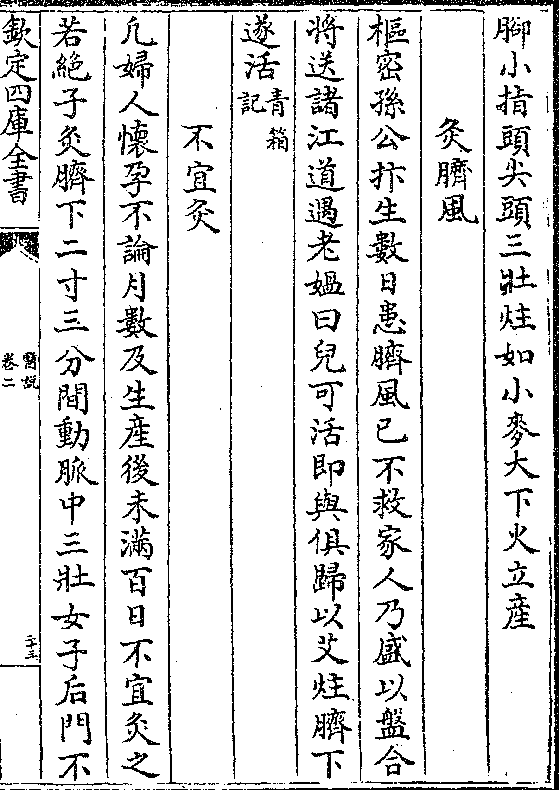 腳小指頭尖頭三壯炷如小麥大下火立產
灸臍風
樞密孫公抃生數日患臍風已不救家人乃盛以盤合
將送諸江道遇老媼曰兒可活即與俱歸以艾炷臍下
遂活青箱記
不宜灸
凡婦人懷孕不論月數及生產後未滿百日不宜灸之
若絕子灸臍下二寸三分間動脈中三壯女子后門不
欽定四庫全書
醫說
卷二
二十三